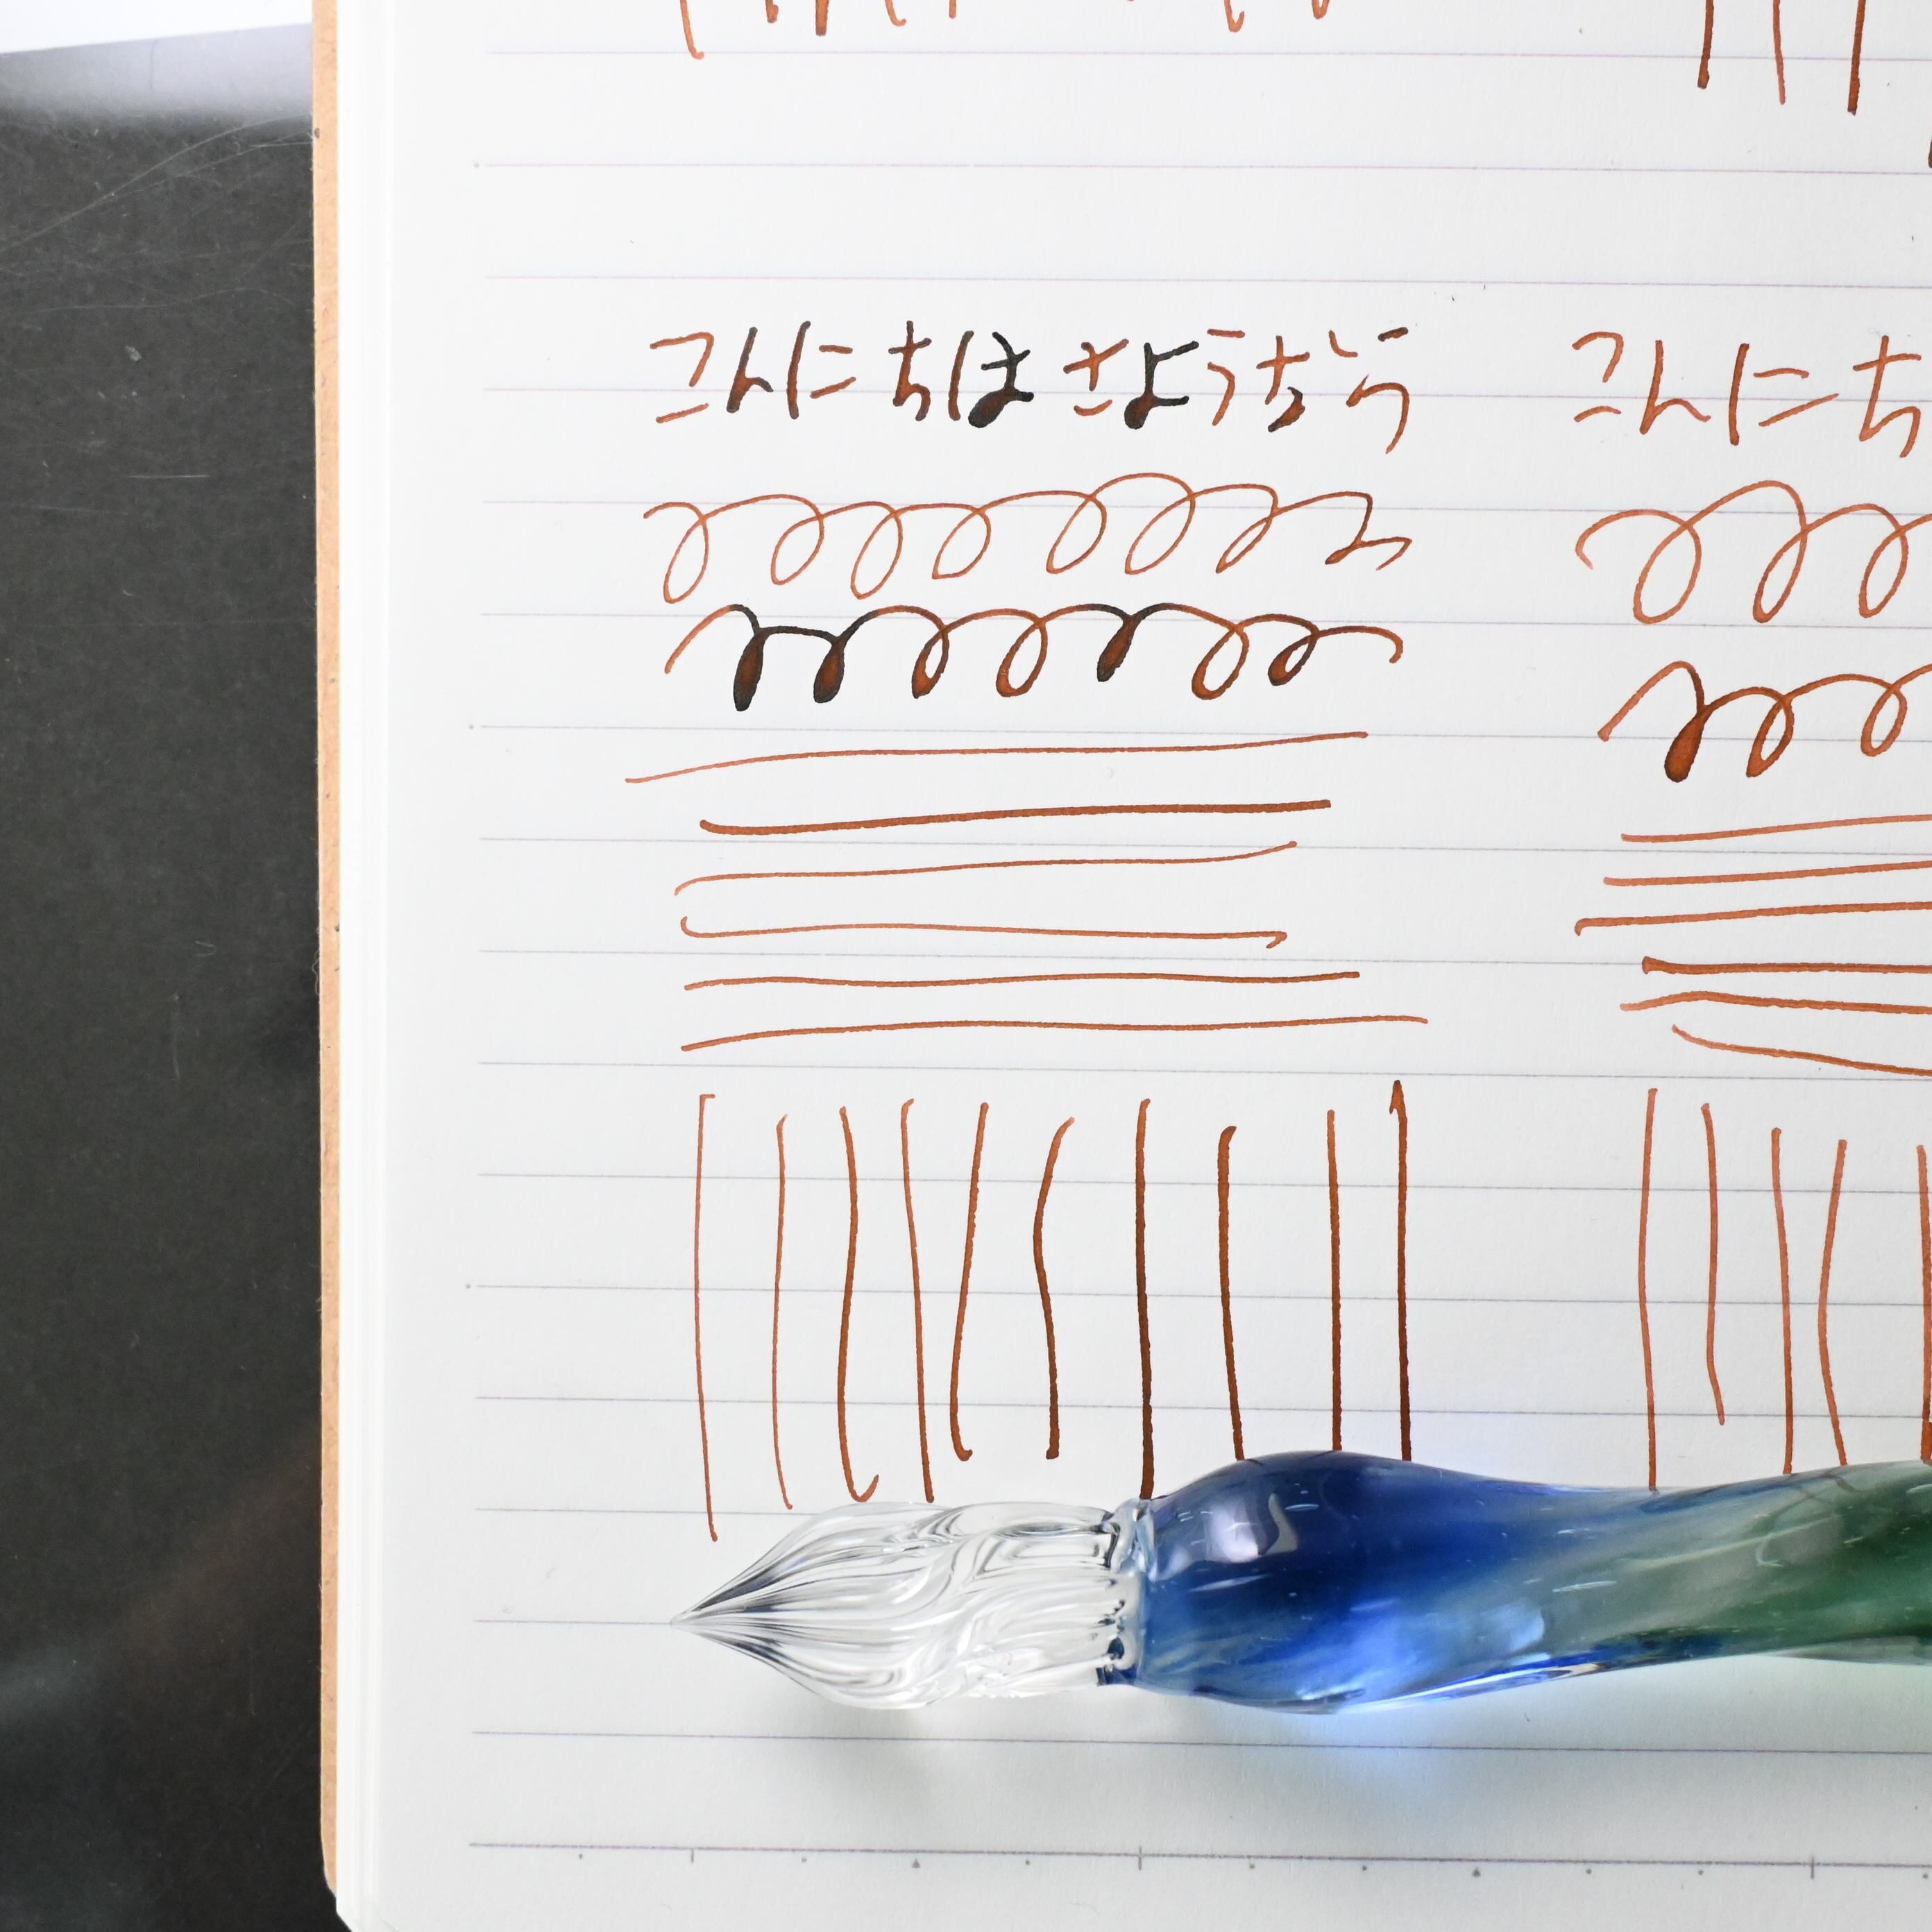 こんにちは さようなら
こんにち